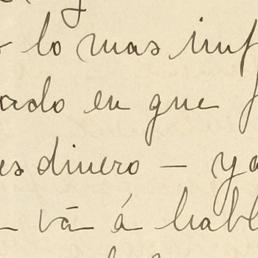 lo mas inf
ardo en que
es dinero — ya
va á habl